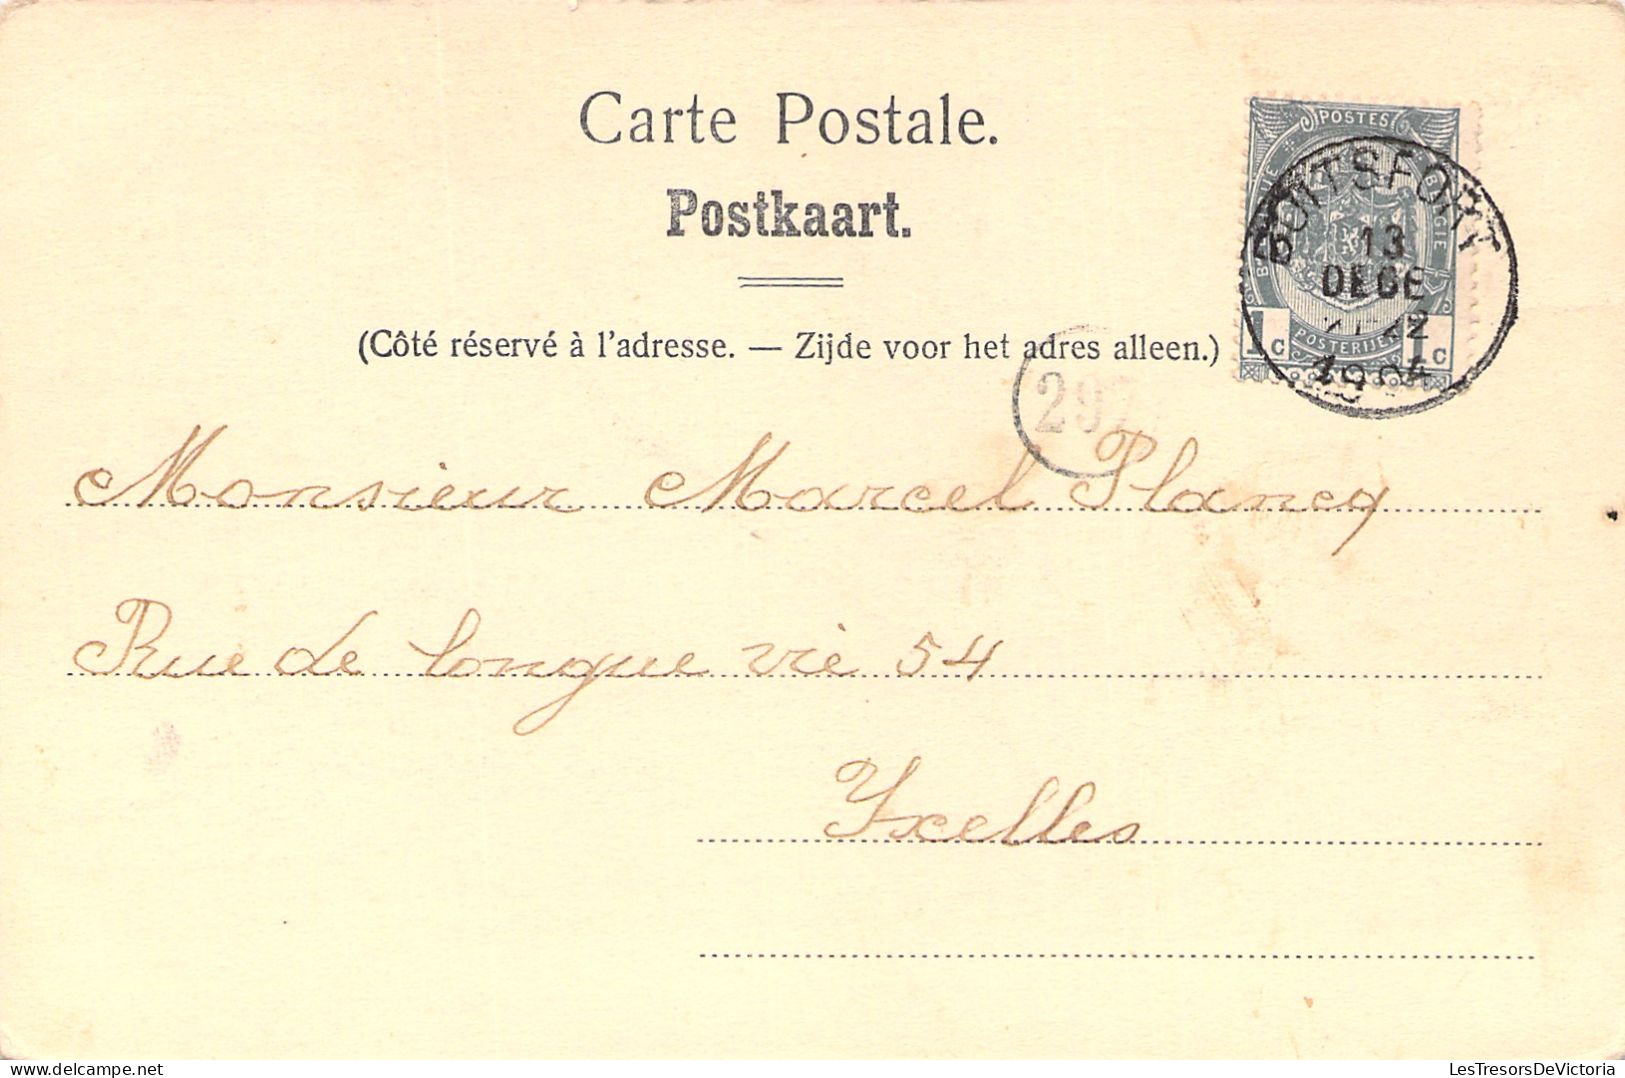 Carte Postale.
Postkaart.
(Côté réservé à l'adresse. — Zijde voor het adres alleen.)
POSTES
BELGIQUE BELGIË
POSTERIJEN
1c 1c
BOITSFORT
13
DECE
1904
297
Monsieur Marcel Plancq
Rue de longue vie 54
Yxelles
LesTresorsDeVictoria